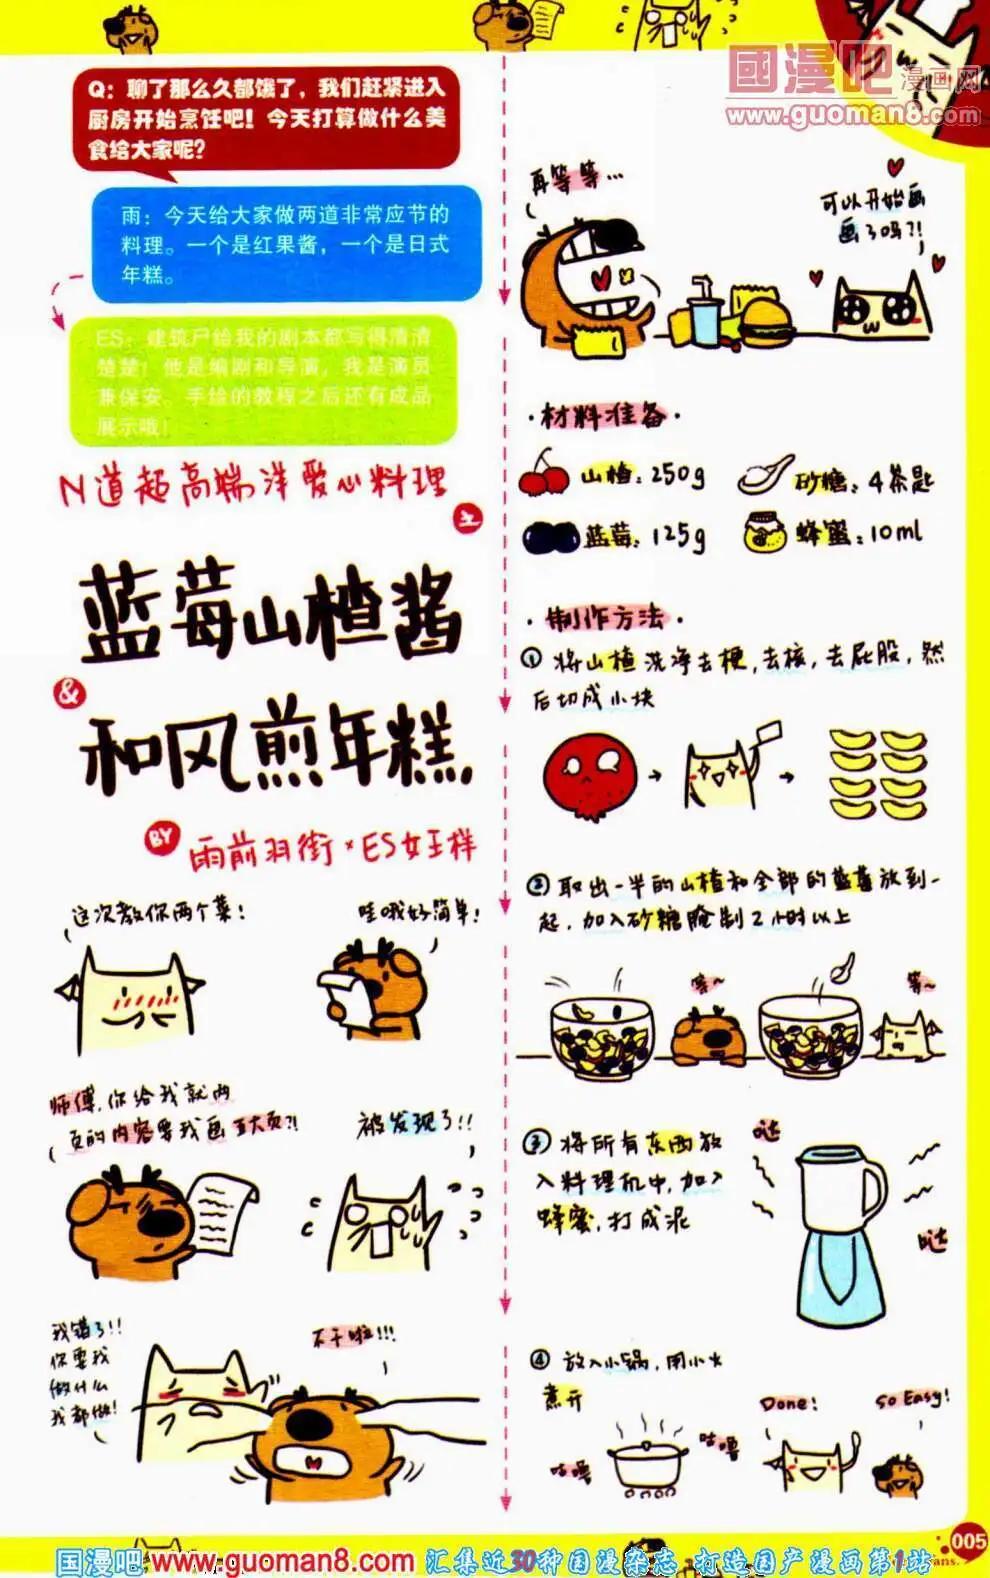 國漫吧
漫画网
www.guoman8.com
Q：聊了那么久都饿了，我们赶紧进入
厨房开始烹饪吧！今天打算做什么美
食给大家呢？
雨：今天给大家做两道非常应节的
料理。一个是红果酱，一个是日式
年糕。
ES：建筑尸给我的剧本都写得清清
楚楚！他是编剧和导演，我是演员
兼保安。手绘的教程之后还有成品
展示哦！
N道超高端洋爱心料理
之
蓝莓山楂酱
&
和风煎年糕
BY
雨前羽街×ES女王样
这次教你两个菜！
哇哦好简单！
师傅，你给我就两
页的内容要我画五大页?!
被发现了!!
我错了!!
你要我
做什么
我都做！
不干啦!!!
再等等…
可以开始画
画了吗?!
·材料准备·
山楂：250g
砂糖：4茶匙
蓝莓：125g
蜂蜜：10ml
·制作方法·
① 将山楂洗净去梗，去核，去屁股，然
后切成小块
② 取出一半的山楂和全部的蓝莓放到一
起，加入砂糖腌制2小时以上
等~
等~
③ 将所有东西放
入料理机中，加入
蜂蜜，打成泥
哒
哒
④ 放入小锅，用小火
煮开
咕噜
咕噜
Done!
So Easy!
005
国漫吧 www.guoman8.com 汇集近30种国漫杂志 打造国产漫画第1站